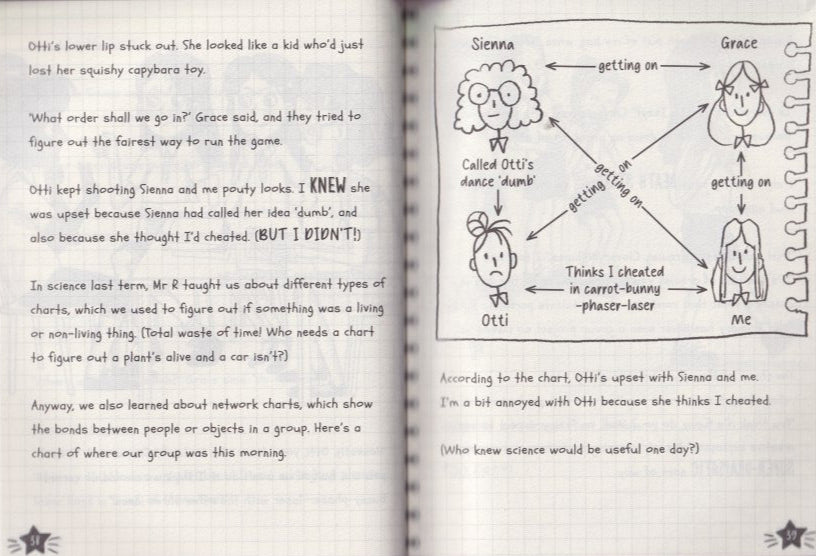 Otti's lower lip stuck out. She looked like a kid who'd just
lost her squishy capybara toy.
'What order shall we go in?' Grace said, and they tried to
figure out the fairest way to run the game.
Otti kept shooting Sienna and me pouty looks. I KNEW she
was upset because Sienna had called her idea 'dumb', and
also because she thought I'd cheated. (BUT I DIDN'T!)
In science last term, Mr R taught us about different types of
charts, which we used to figure out if something was a living
or non-living thing. (Total waste of time! Who needs a chart
to figure out a plant's alive and a car isn't?)
Anyway, we also learned about network charts, which show
the bonds between people or objects in a group. Here's a
chart of where our group was this morning.
38
Sienna
Grace
getting on
Called Otti's
dance 'dumb'
getting on
getting on
getting on
Thinks I cheated
in carrot-bunny
-phaser-laser
Otti
Me
According to the chart, Otti's upset with Sienna and me.
I'm a bit annoyed with Otti because she thinks I cheated.
(Who knew science would be useful one day?)
39